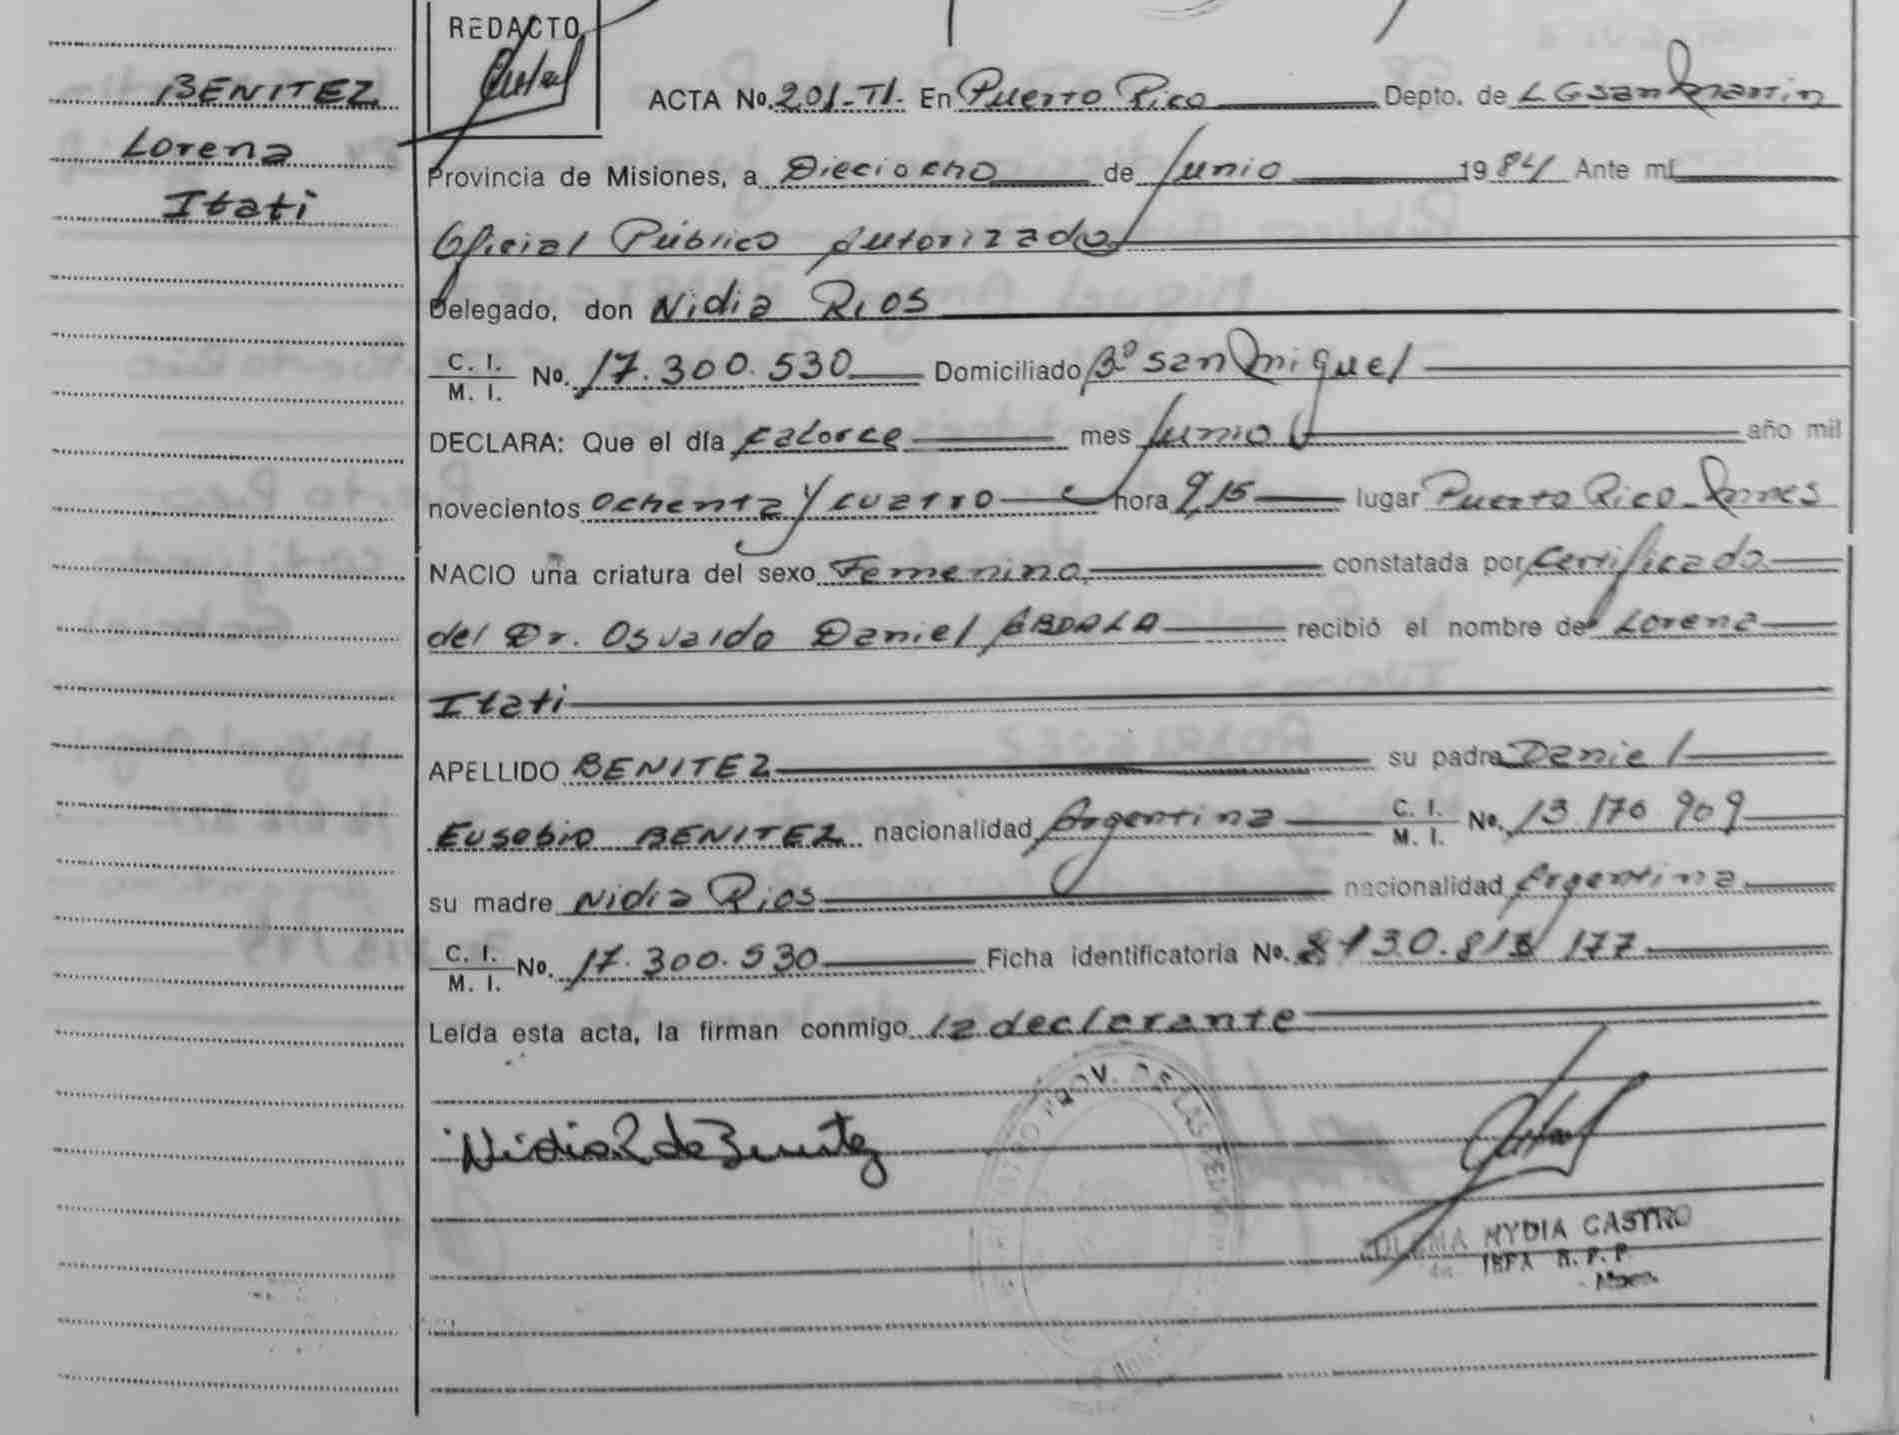 REDACTO
BENITEZ
Lorena
Itati
ACTA No. 201-TI- En Puerto Rico Depto. de LGSan Martin
Provincia de Misiones, a Dieciocho de Junio 1984 Ante mí
Oficial Público Autorizado
Delegado, don Nidia Rios
C. I.
M. I. No. 17.300.530 Domiciliado Bº San Miguel
DECLARA: Que el día catorce mes Junio año mil
novecientos ochenta y cuatro hora 9,15 lugar Puerto Rico-Mnes
NACIO una criatura del sexo Femenino, constatada por Certificado
del Dr. Osvaldo Daniel ABDALA recibió el nombre de Lorena
Itati
APELLIDO BENITEZ su padre Daniel
Eusebio BENITEZ nacionalidad Argentina C. I.
M. I. No. 13 170 909
su madre Nidia Rios nacionalidad Argentina
C. I.
M. I. No. 17.300.530 Ficha identificatoria No. 177
Leída esta acta, la firman conmigo la declarante
Nidia R de Benitez
PROV. DE
MYDIA CASTRO